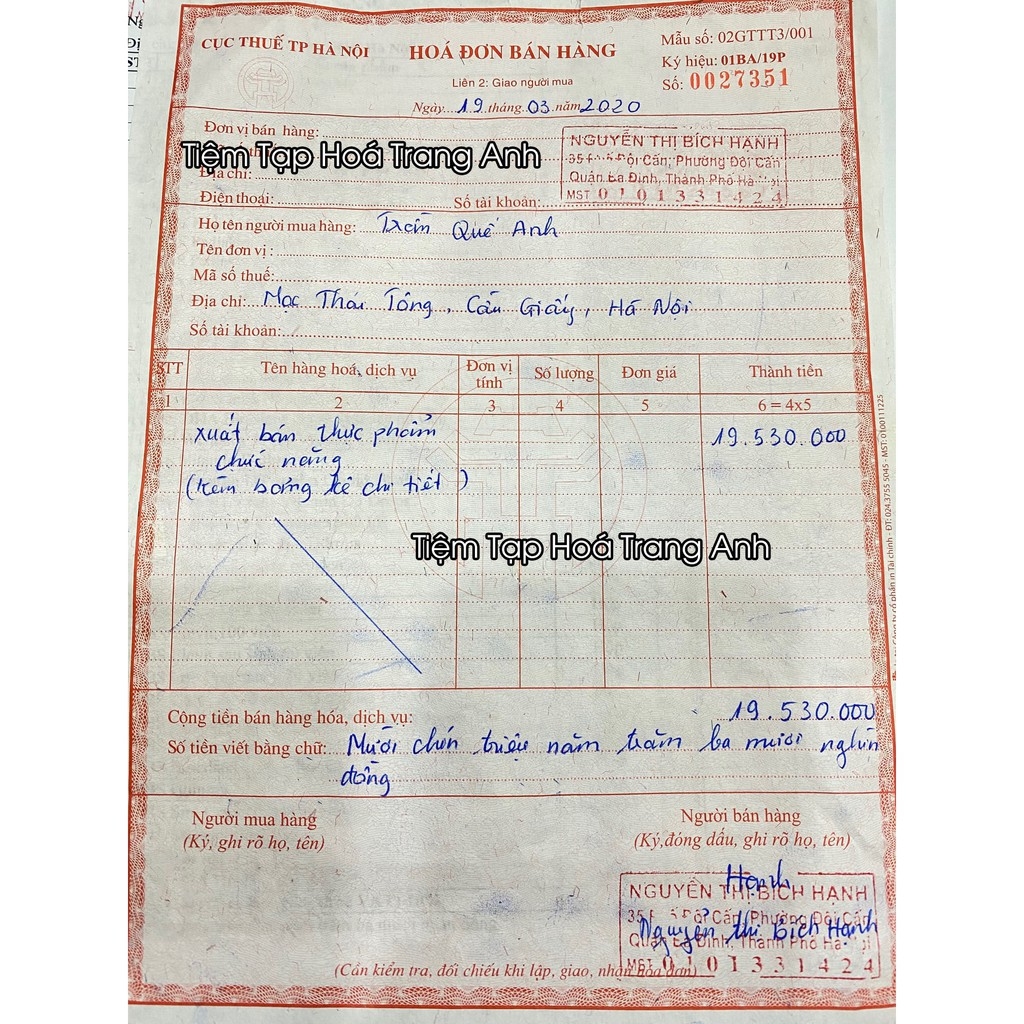 CỤC THUẾ TP HÀ NỘI
HOÁ ĐƠN BÁN HÀNG
Mẫu số: 02GTTT3/001
Ký hiệu: 01BA/19P
Liên 2: Giao người mua
Số: 0027351
Ngày 19 tháng 03 năm 2020
Đơn vị bán hàng:
Tiệm Tạp Hoá Trang Anh
Địa chỉ:
Điện thoại: Số tài khoản:
NGUYỄN THỊ BÍCH HẠNH
Đội Cấn, Phường Đội Cấn
Quận Ba Đình, Thành Phố Hà Nội
MST 0101331424
Họ tên người mua hàng: Trần Quế Anh
Tên đơn vị:
Mã số thuế:
Địa chỉ: Mạc Thái Tông, Cầu Giấy, Hà Nội
Số tài khoản:
STT Tên hàng hoá, dịch vụ Đơn vị tính Số lượng Đơn giá Thành tiền
1 2 3 4 5 6 = 4x5
xuất bán thực phẩm 19.530.000
chức năng
(kèm bảng kê chi tiết)
Tiệm Tạp Hoá Trang Anh
Cộng tiền bán hàng hóa, dịch vụ: 19.530.000
Số tiền viết bằng chữ: Mười chín triệu năm trăm ba mươi nghìn
đồng
Người mua hàng
(Ký, ghi rõ họ, tên)
Người bán hàng
(Ký,đóng dấu, ghi rõ họ, tên)
Hạnh
NGUYỄN THỊ BÍCH HẠNH
Đội Cấn, Phường Đội Cấn
Nguyễn Thị Bích Hạnh
Quận Ba Đình, Thành Phố Hà Nội
MST 0101331424
(Cần kiểm tra, đối chiếu khi lập, giao, nhận hóa đơn)
Công ty cổ phần in Tài chính - ĐT: 024.3755 5045 - MST: 0100111225